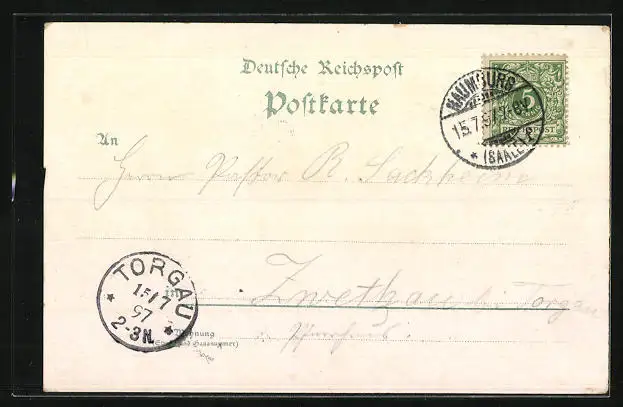 Deutsche Reichspost
Postkarte
NAUMBURG
15.7.97
(SAALE)
5
REICHSPOST
An
Herrn Pastor R.
TORGAU
15/7
97
2-3N.
in
Zwethau bei Torgau
Wohnung
Pfarrhaus.
(Straße und Hausnummer)